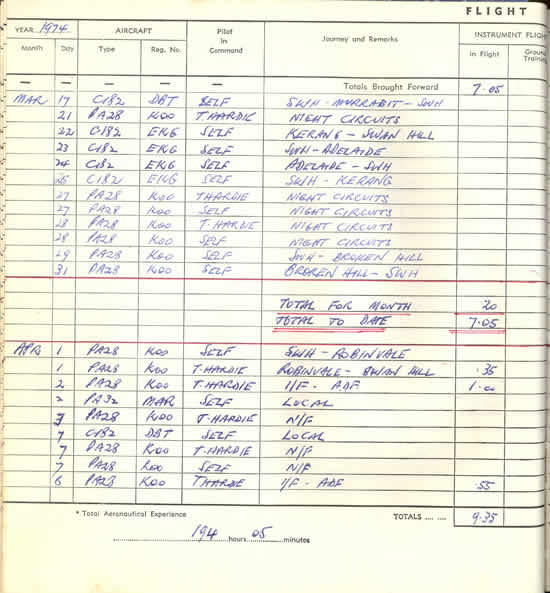 FLIGHT
YEAR 1974 AIRCRAFT Pilot in Command Journey and Remarks INSTRUMENT FLIGH
Month Day Type Reg. No. In Flight Groun Trainin
— — — — Totals Brought Forward 7.05
MAR 17 C182 DBT SELF SWH - MURRABIT - SWH
21 PA28 KOO T HARDIE NIGHT CIRCUITS
22 C182 EKG SELF KERANG - SWAN HILL
23 C182 EKG SELF SWH - ADELAIDE
24 C182 EKG SELF ADELAIDE - SWH
25 C182 EKG SELF SWH - KERANG
27 PA28 KOO T HARDIE NIGHT CIRCUITS
27 PA28 KOO SELF NIGHT CIRCUITS
28 PA28 KOO T. HARDIE NIGHT CIRCUITS
28 PA28 KOO SELF NIGHT CIRCUITS
29 PA28 KOO SELF SWH - BROKEN HILL
31 PA28 KOO SELF BROKEN HILL - SWH
TOTAL FOR MONTH
TOTAL TO DATE 7.05
APR 1 PA28 KOO SELF SWH - ROBINVALE
1 PA28 KOO T. HARDIE ROBINVALE - SWAN HILL .35
2 PA28 KOO T. HARDIE I/F - ADF 1.00
2 PA32 MAR SELF LOCAL
3 PA28 KOO T. HARDIE N/F
7 C182 DBT SELF LOCAL
7 PA28 KOO T. HARDIE N/F
7 PA28 KOO SELF N/F
8 PA28 KOO T HARDIE I/F - ADF .55
* Total Aeronautical Experience TOTALS ........ 9.35
194 hours 05 minutes